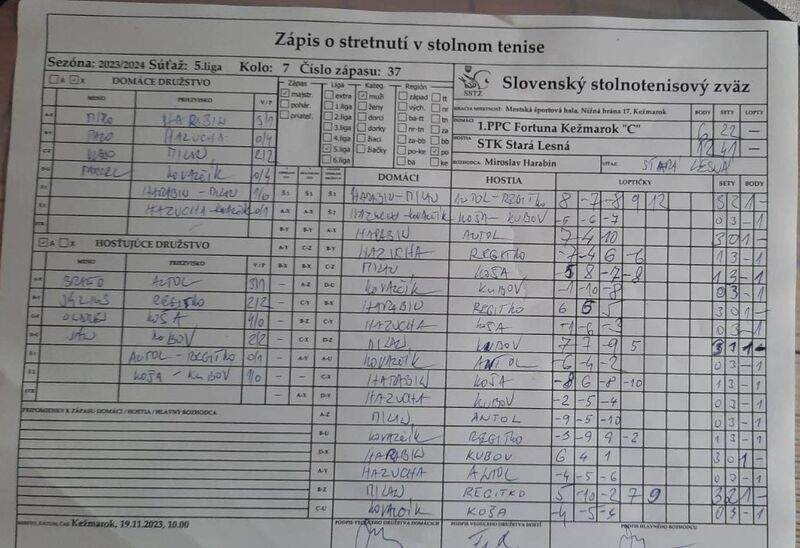 Zápis o stretnutí v stolnom tenise
Sezóna: 2023/2024 Súťaž: 5.liga Kolo: 7 Číslo zápasu: 37
A X DOMÁCE DRUŽSTVO
MENO PRIEZVISKO V/P
HARABIN 3/1
HAZUCHA 0/4
MILAN 2/2
KOVALČIK 0/4
HARABIN - MILAN 1/0
HAZUCHA - KOVALČIK 0/1
Zápas
majstr.
pohár.
priateľ.
Liga
extra
1.liga
2.liga
3.liga
4.liga
5.liga
6.liga
Kateg.
muži
ženy
dorci
dorky
žiaci
žiačky
Región
západ tt
vých. nr
ba-tt tn
nr-tn za
za-bb bb
po-ke po
ba ke
SSTZ
Slovenský stolnotenisový zväz
HRACIA MIESTNOSŤ: Mestská športová hala, Nižná brána 17, Kežmarok BODY SETY LOPTY
DOMÁCI 1.PPC Fortuna Kežmarok "C" 6 22 -
HOSTIA STK Stará Lesná 12 41 -
ROZHODCA Miroslav Harabin VÍŤAZ: STARÁ LESNÁ
A X HOSŤUJÚCE DRUŽSTVO
MENO PRIEZVISKO V/P
ANTOL 3/1
JÚLIUS REGITKO 2/2
ONDREJ KOŠA 4/0
JÁN KUBOV 2/2
ANTOL - REGITKO 0/1
KOŠA - KUBOV 1/0
PRIPOMIENKY K ZÁPASU DOMÁCI / HOSTIA / HLAVNÝ ROZHODCA
DOMÁCI HOSTIA LOPTIČKY SETY BODY
HARABIN - MILAN ANTOL - REGITKO 8 -7 -8 9 12 3 2 1 -
HAZUCHA - KOVALČIK KOŠA - KUBOV -5 -6 -7 0 3 - 1
HARABIN ANTOL 7 4 10 3 0 1 -
HAZUCHA REGITKO -7 -4 6 -6 1 3 - 1
MILAN KOŠA -5 8 -7 -8 1 3 - 1
KOVALČIK KUBOV -1 -10 -8 0 3 - 1
HARABIN REGITKO 6 5 5 3 0 1 -
HAZUCHA KOŠA -1 -6 -3 0 3 - 1
MILAN KUBOV 7 -7 9 5 3 1 1 -
KOVALČIK ANTOL -6 -4 -2 0 3 - 1
HARABIN KOŠA -8 6 -8 -10 1 3 - 1
HAZUCHA KUBOV -2 -5 -4 0 3 - 1
MILAN ANTOL -9 -5 -10 0 3 - 1
KOVALČIK REGITKO -3 -9 9 -2 1 3 - 1
HARABIN KUBOV 6 4 1 3 0 1 -
HAZUCHA ANTOL -4 -5 -6 0 3 - 1
MILAN REGITKO 5 -10 -2 7 9 3 2 1 -
KOVALČIK KOŠA -4 -5 -4 0 3 - 1
MIESTO, DÁTUM, ČAS: Kežmarok, 19.11.2023, 10.00
PODPIS VEDÚCEHO DRUŽSTVA DOMÁCICH PODPIS VEDÚCEHO DRUŽSTVA HOSTÍ PODPIS HLAVNÉHO ROZHODCU